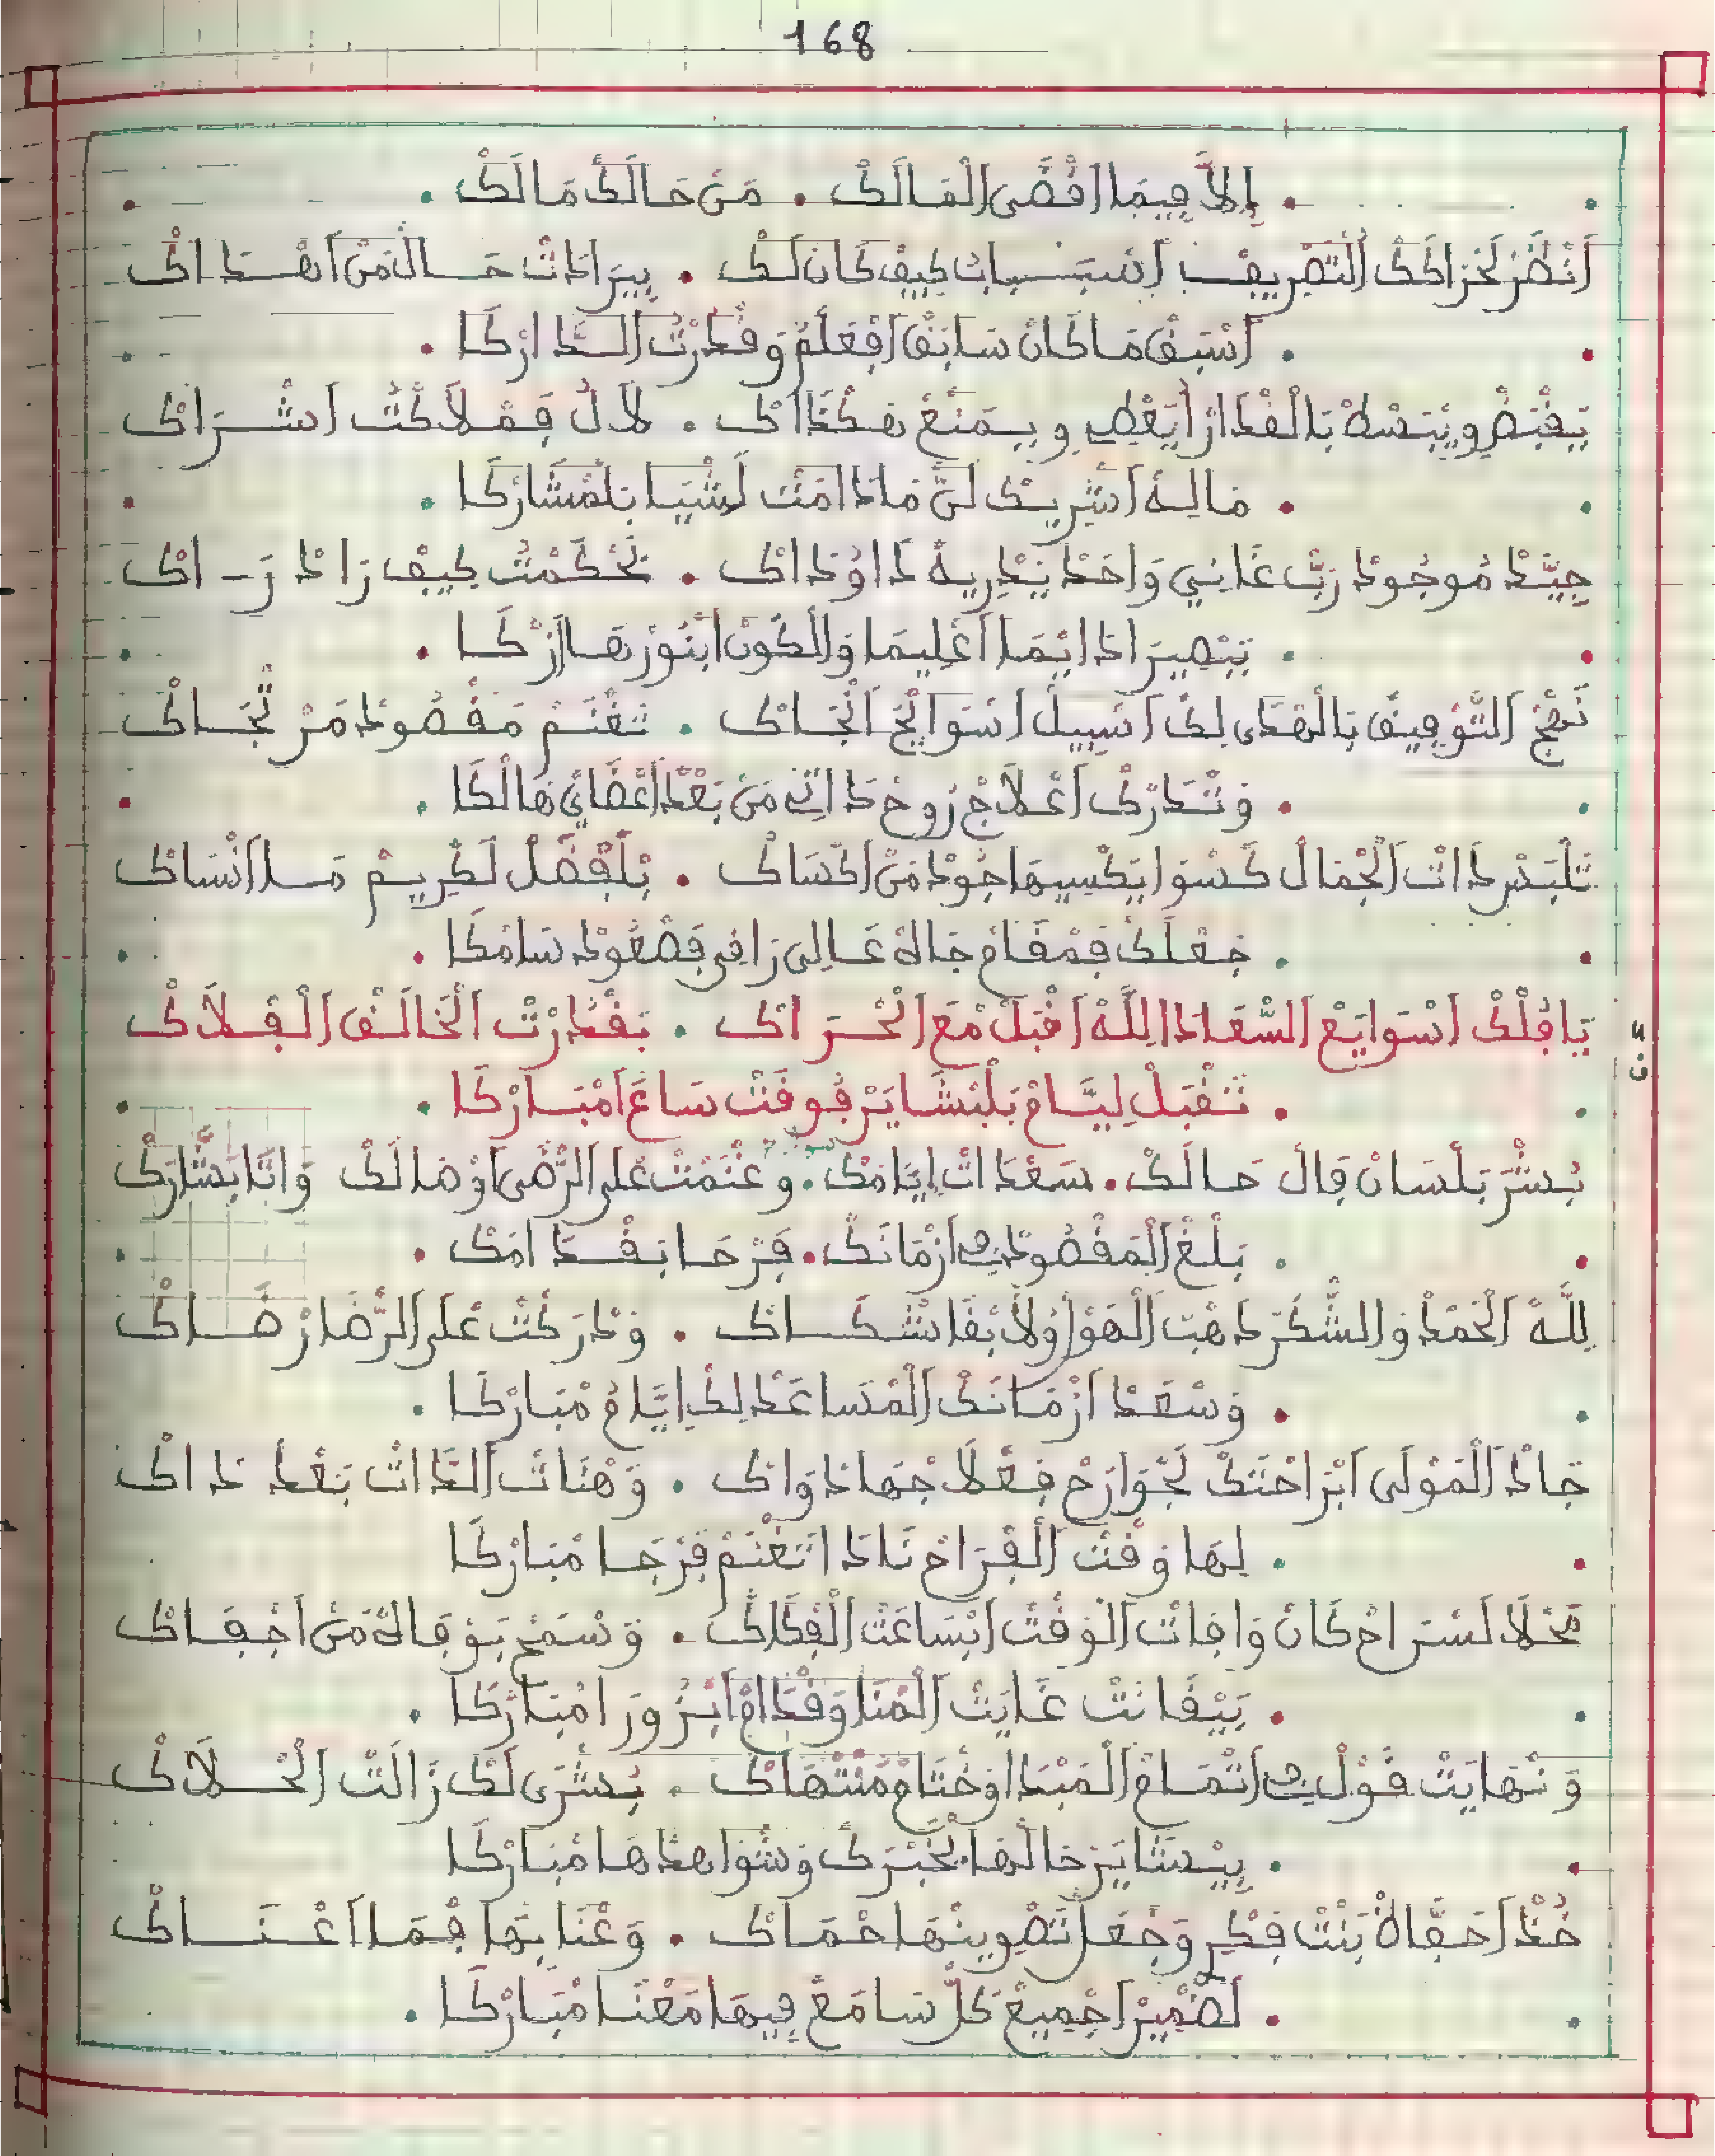 168
إِلاَّ فِيمَا اقْضَى الْمَالَكْ . مَنْ حَالَكْ مَالَكْ .
أَنْظَرْ لَحْرَاكَكْ التَّصْرِيفْ أَسْبَـسبابْ كِيفْ كَانْ لَكْ . بِيرَادَتْ حَـالْ مَنْ أَهْـدَاكْ
. اَسْبَقْ مَا كَانْ سَابَقْ اَفْعَلَمْ وَقُدْرَتْ الـدَّارْكَا .
يَقْبَضْ وِيَبْسَطْ بَالْقْدَارْ اُيَعْطِي وِيـمْنَعْ هَكْدَاكْ . لاَلُ فَمْلاَكْتُ اَشْـرَاكْ
. مَالِهْ اَشْرِيـكْ لَنَّ مَادَامَتْ لَشْيَا بَلْمْشَارْكَا .
حِيَّدْ مُوجُودْ رَبِّ غَانِي وَاحَدْ يَدْرِيهْ دَاوْدَاكْ . تَحْكَمْتُ كِيفْ رَادْ رَ- اكْ
. تَبْصِيرَا دَايْمَا اَعْلِيمَا وَالْكُونْ اَبْنُورْهَا اَزْكَا .
نَهْجْ التَّوْفِيقْ بَالْهْدَى لِكْ اَسْبِيلْ اَسْوَايْحْ اَنْجَاكْ . تَغْنَمْ مَقْصُودْ مَرْتْجَـاكْ
. وَتْدَارْكْ اَعْلاَجْ رُوحْ دَاتِي مَنْ بَعْدْ اَعْضَايْ هَالْكَا .
تَلْبَسْ دَاتْ الْجْمَالْ كَسْوَا يَكْسِيهَا جُودْ مَنْ اَكْسَاكْ . بَلْفْضَلْ لَكْرِيـمْ مَـا اَنْسَاكْ
. جَعْلَكْ فَمْقَامْ جَاهْ عَـالِى رَاقِي فَصْعُودْ سَامْكَا .
يَا قُلْكْ اَسْوَايَعْ السَّعَادَا لِلَّهْ اَقْبَلْ مْعَ الْحْـرَاكْ . بَقْدْرْتْ الْخَالَقْ الْفْـلاَكْ
. تَقْبَلْ لِيَّـامْ بَلْبْشَايَرْ فُوقَتْ سَاعَ اَمْبَـارْكَا .
بُشْرَ بَلْسَانْ فَالْ حَـالَكْ . سَعْدَاتْ اِيَّامَكْ . وعْنَمْتْ عْلَى الرّْضَى اَوْصَالَكْ وَانَّا بَشَّارَكْ
. بَلْغْ الْمَقْصُودْ فِي اَزْمَانَكْ . فَرْحَـا بَقْـدَامَكْ .
لِلَّهْ الْحَمْدْ وَالشُّكْرْ دَهْبْ الْهْوَلْ وُلاَ بْقَاشْ شْكَـاكْ . وَدْرَكْتْ عْلَى الرّْضَا رْضَـاكْ
. وَسْعَدْ اَزْمَانَكْ الْمْسَاعَدْ لِكْ اِيَّامْ مْبَارْكَا .
جَادْ الْمَوْلَى اَبْرَاحْتَكْ لَجْوَارَحْ فِعْلاَجْهَا دْوَاكْ . وَهْنَاتْ الدَّاتْ بَعْدْ دَاكْ
. لِهَا وَقْتْ الْفْرَاحْ نَادَا تَغْنَمْ فَرْحَـا مْبَارْكَا
مَحْلاَ لَسْرَاحْ كَانْ وَافَاتْ الْوَقْتْ اَبْسَاعَتْ الْفْكَاكْ . وَسْمَحْ بَوْفَاهْ مَنْ اَجْفَـاكْ
. يَبْقَاتْ غَايَتْ الْمْنَا وَقْدَامْ اَبْزُورَا مْبَارْكَا .
وَنْهَايَتْ قَوْلْ فِي اَتْمَـامْ الْمَبْدَا وَخْتَامْ مُنْتْهَاكْ . بُشْرَى لَكْ زَالَتْ الْحْـلاَكْ
. بِبْشَايَرْ حَالْهَا تْخَبْرَكْ وَشْوَاهَدْهَا مْبَارْكَا
خُدْ اَحَفَّاظْ بَنْتْ فِكْرِ وَجْعَلْ تَصْوِينْهَا حْمَاكْ . وَعْنَايْتْهَا فْمَـا اَعْـنَـاكْ
. لَضْمِيرْ اَجْمِيعْ كَلّْ سَامَعْ فِيهَا مَعْنَـا مْبَارْكَا .